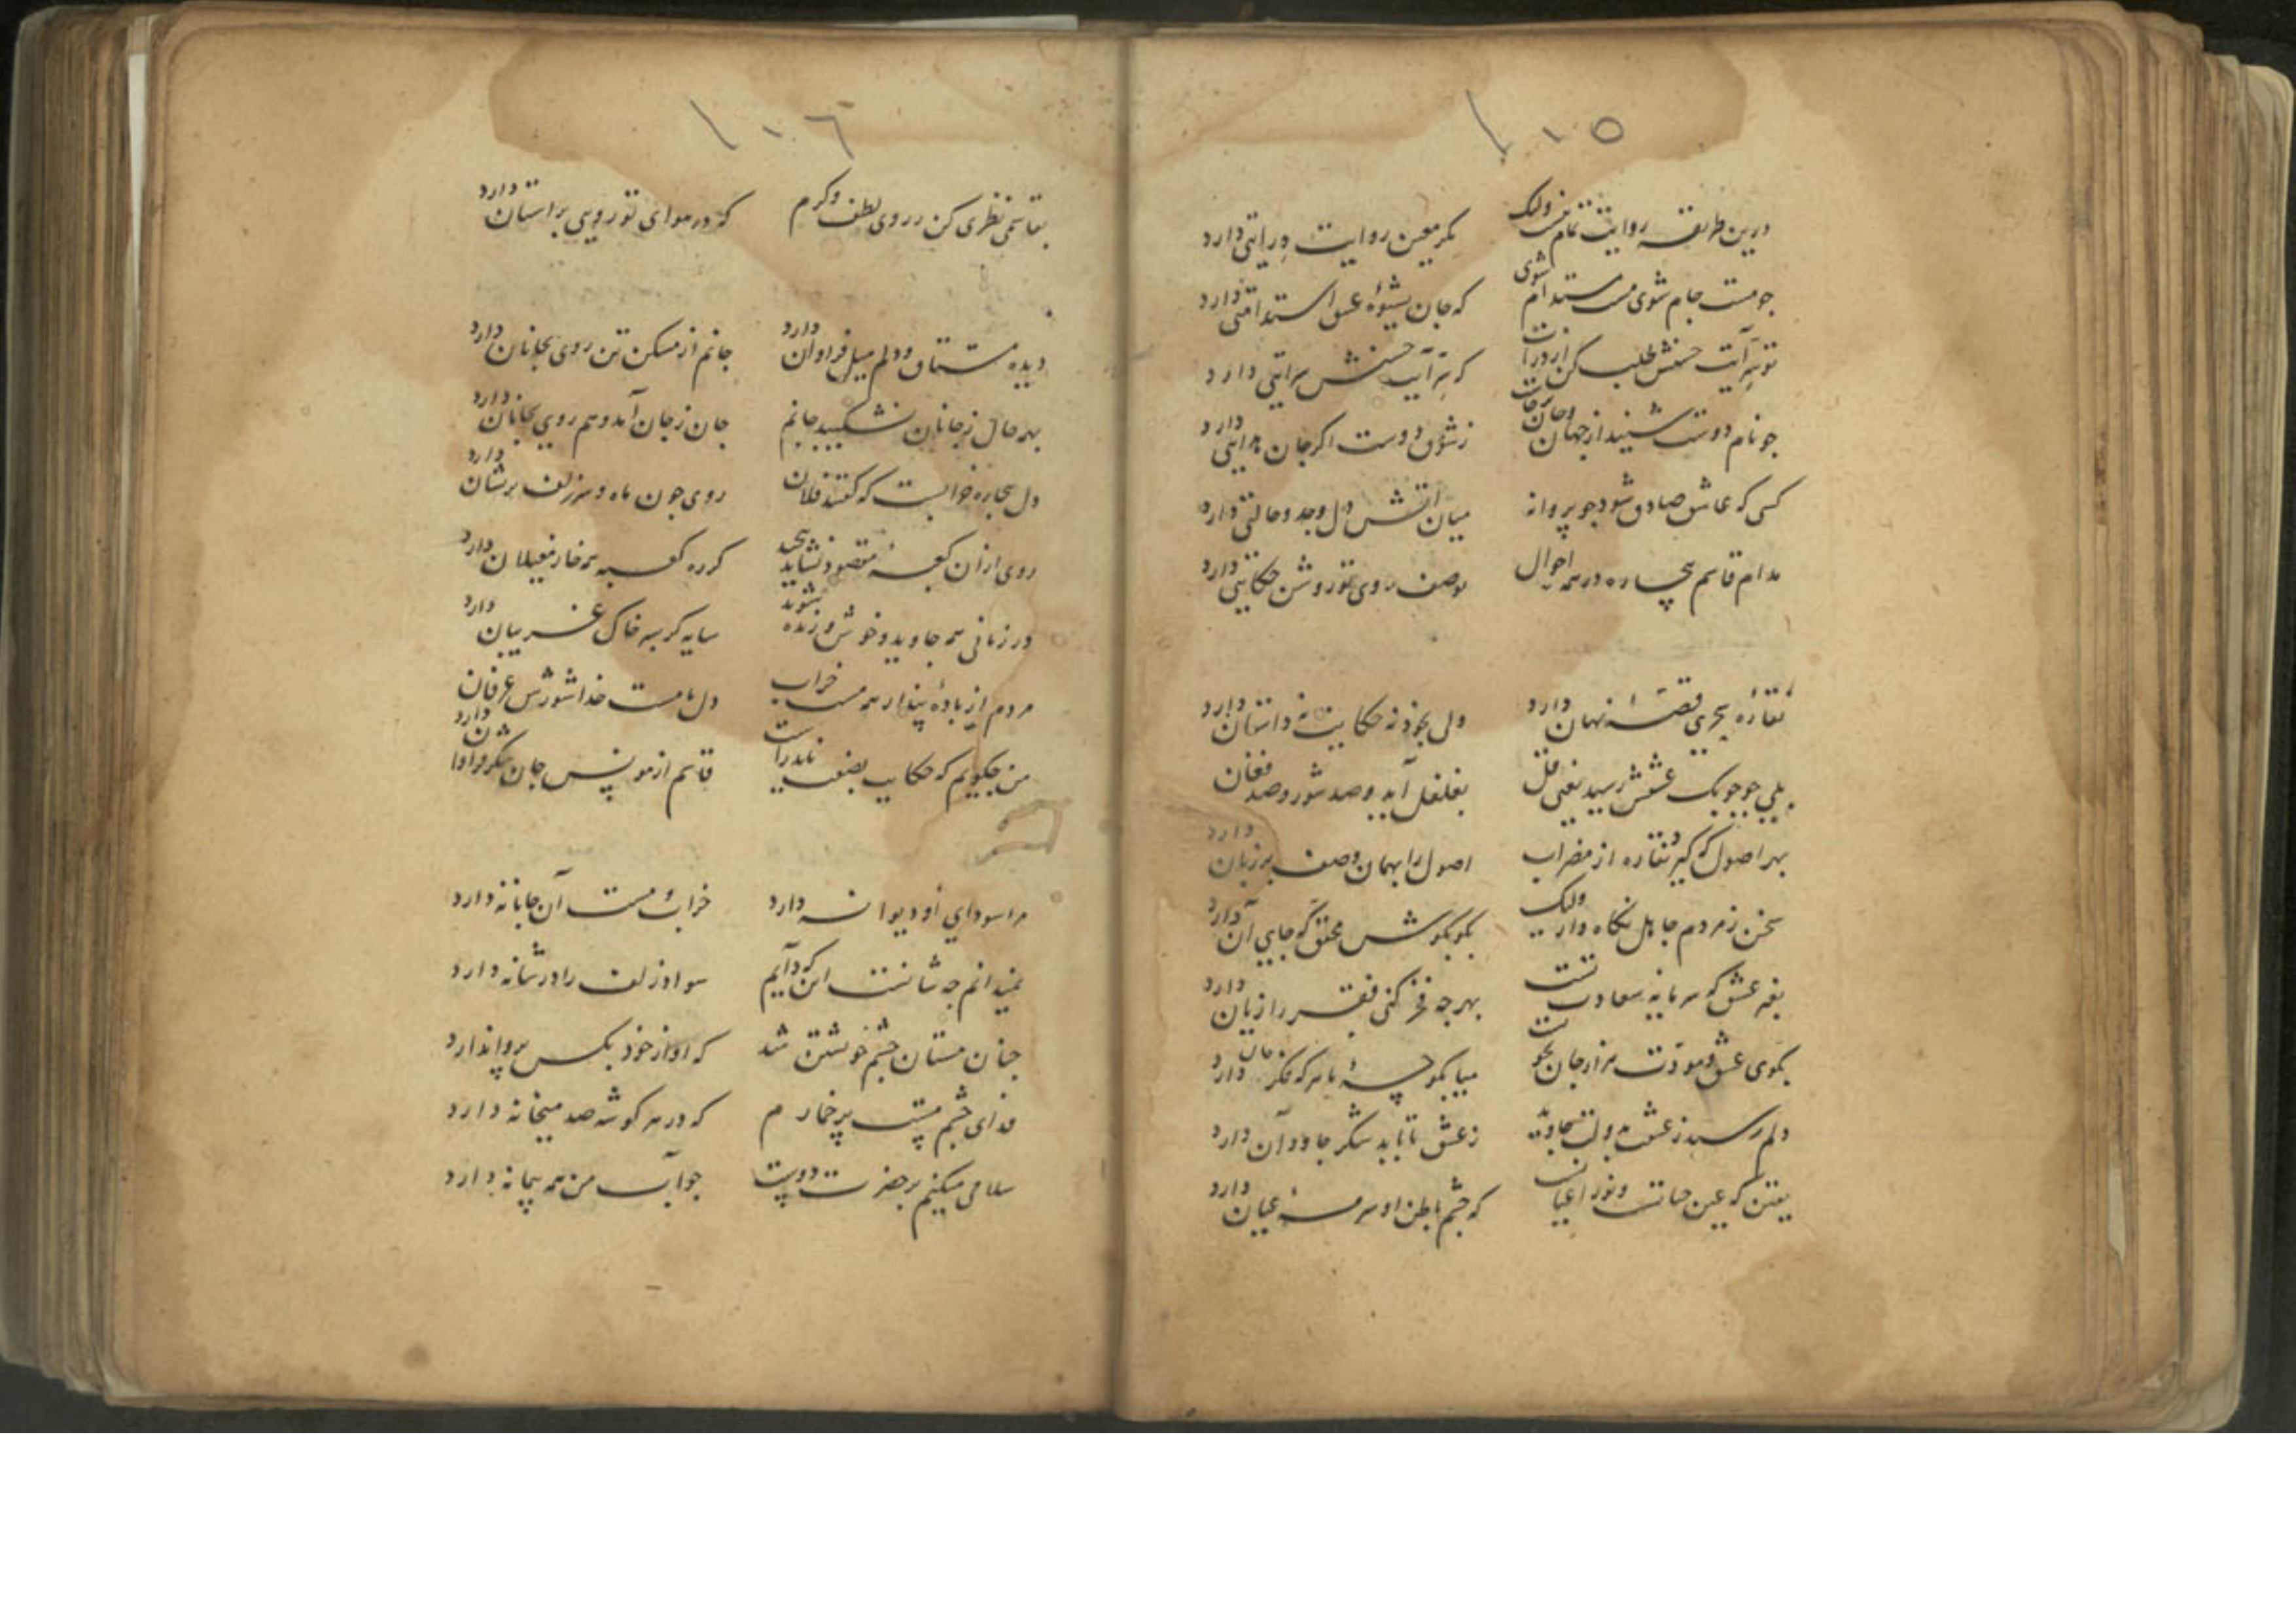 ۱۰۵
درین طریقه روایت تمام نیست ولیک مکر معین روایت درایتی دارد
جو مست جام شوی مست مستدام شوی که جان بشیوهٔ عشق استدامتی دارد
تو سِرّ آیت حسنش طلب کن از ذرات که سِرّ آیت حسنش سرایتی دارد
جو نام دوست شنید از جهان و جان برخاست ز شوق دوست اکر جان دارد
کسی که عاشق صادق شود جو پروانه میان اتش دل وجد و حالتی دارد
مدام قاسم بیچاره در همه احوال بوصف روی تو روشن حکایتی دارد
نقاره سحری قصهٔ نهان دارد ولی بخود نه حکایت نه داستان دارد
بلی جو جوبک عشقش رسید یعنی قل بغلغل آید و صد شور و صد فغان دارد
بهر اصول که کیرد نقاره از مضراب اصول را بهمان وصف بر زبان دارد
سخن ز مردم جاهل نکاه دار ولیک بکو بکوش محقق که جای آن دارد
بغیر عشق که سرمایه سعادت تست بهر جه فخر کنی فقر را زیان دارد
بکوی عشق و مودت هزار جان بجوست میا بکوچهٔ ما هر که فکر جان دارد
دلم رسید ز عشقت بدولت جاوید ز عشق تا بابد شکر جاودان دارد
یقین که عین حیاتست و نور اعیانست که جشم باطن او سرمهٔ عیان دارد
۱۰۶
بقاسمی نظری کن ز روی لطف و کرم که در هوای تو رویی بر استان دارد
دیده مشتاق و دلم میل فراوان دارد جانم از مسکن تن روی بجانان دارد
بهر حال ز جانان نشکیبد جانم جان ز جان آمد و هم روی بجانان دارد
دل بیجاره خرابست که کفتند فلان روی جون ماه و سر زلف پرشان دارد
روی از آن کعبهٔ مقصود نشاید پیچید کر ره کعبه همه خار مغیلان دارد
در زمانی همه جاوید و خوش و زنده شوند سایه کر بسر خاک غریبان دارد
مردم از بادهٔ پندار همه مست خراب دل ما مست خدا شورش عرفان دارد
من جکویم که حکایت بصفت نادراست قاسم از مونس جان شکر فراوان دارد
مرا سودای او دیوانه دارد خراب و مست آن جانانه دارد
نمیدانم جه شانست این که دایم سواد زلف را در شانه دارد
جنان مستان جشم خویشتن شد که او از خود بکس پروا ندارد
فدای جشم مست پرخمارم که در هر کوشه صد میخانه دارد
سلامی میکنم بر حضرت دوست جواب من همه پیمانه دارد